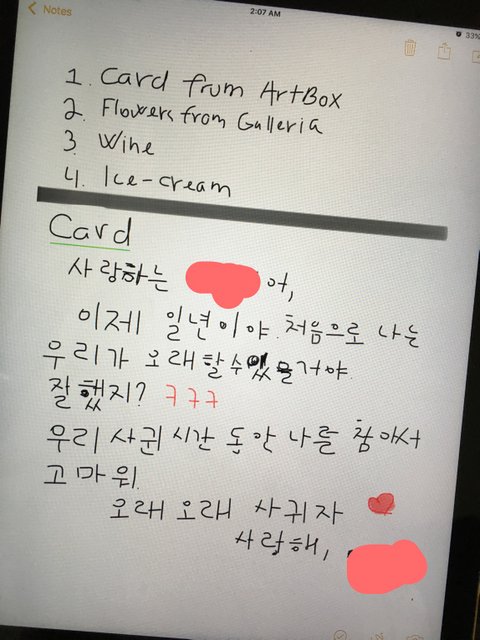 Notes
2:07 AM
33%
1. Card from ArtBox
2. Flowers from Galleria
3. Wine
4. Ice-cream
Card
사랑하는 어,
이제 일년이야. 처음으로 나는
우리가 오래할수있을거야.
잘했지? ㅋㅋㅋ
우리 사귄 시간 동안 나를 참아서
고마워.
오래 오래 사귀자
사랑해,